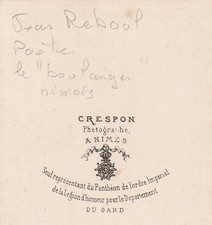 Jean Reboul
Poète
le "boulanger"
nimois
CRESPON
Photographe,
A NIMES
Seul représentant du Panthéon de l'ordre Impérial
de la Légion d'honneur pour le Département
DU GARD